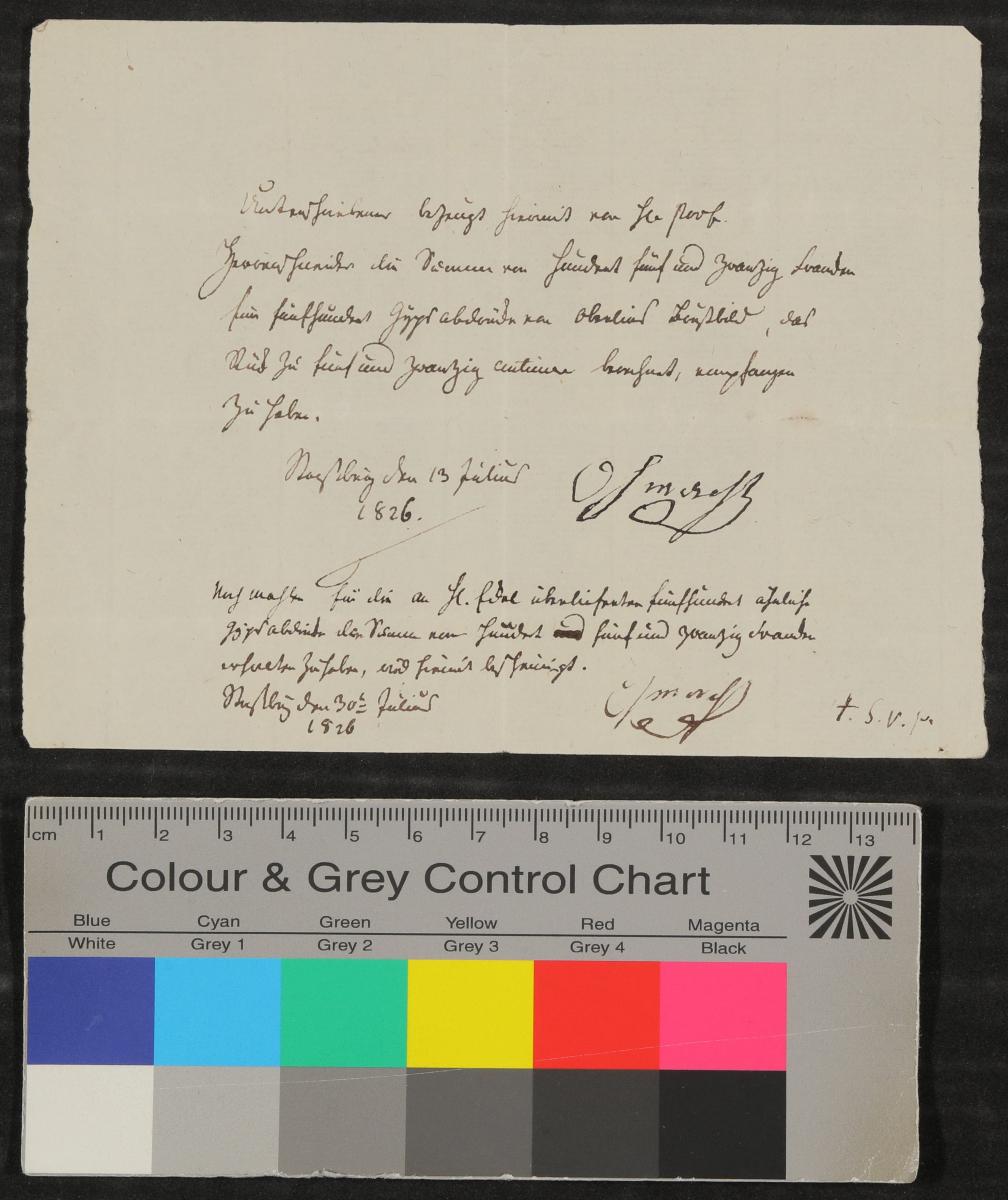 Unterschriebener bezeugt hiermit von Hr. Prof.
Herrenschneider die Summe von Hundert fünf und zwanzig Franken
für fünfhundert Gypsabdrücke von Oberlins Bustbild, das
Stük zu fünf und zwanzig centimen berechnet, empfangen
zu haben.
Straßburg den 13 Julius
1826.
Nochmahlen für die an Hr. Edel überlieferten fünfhundert ähnliche
Gypsabdrücke die Summe von Hundert und fünf und zwanzig Franken
erhalten zu haben, wird hiermit bescheinigt.
Straßburg den 30t Julius
1826
T. S. V. p.
cm 1 2 3 4 5 6 7 8 9 10 11 12 13
Colour & Grey Control Chart
Blue Cyan Green Yellow Red Magenta
White Grey 1 Grey 2 Grey 3 Grey 4 Black